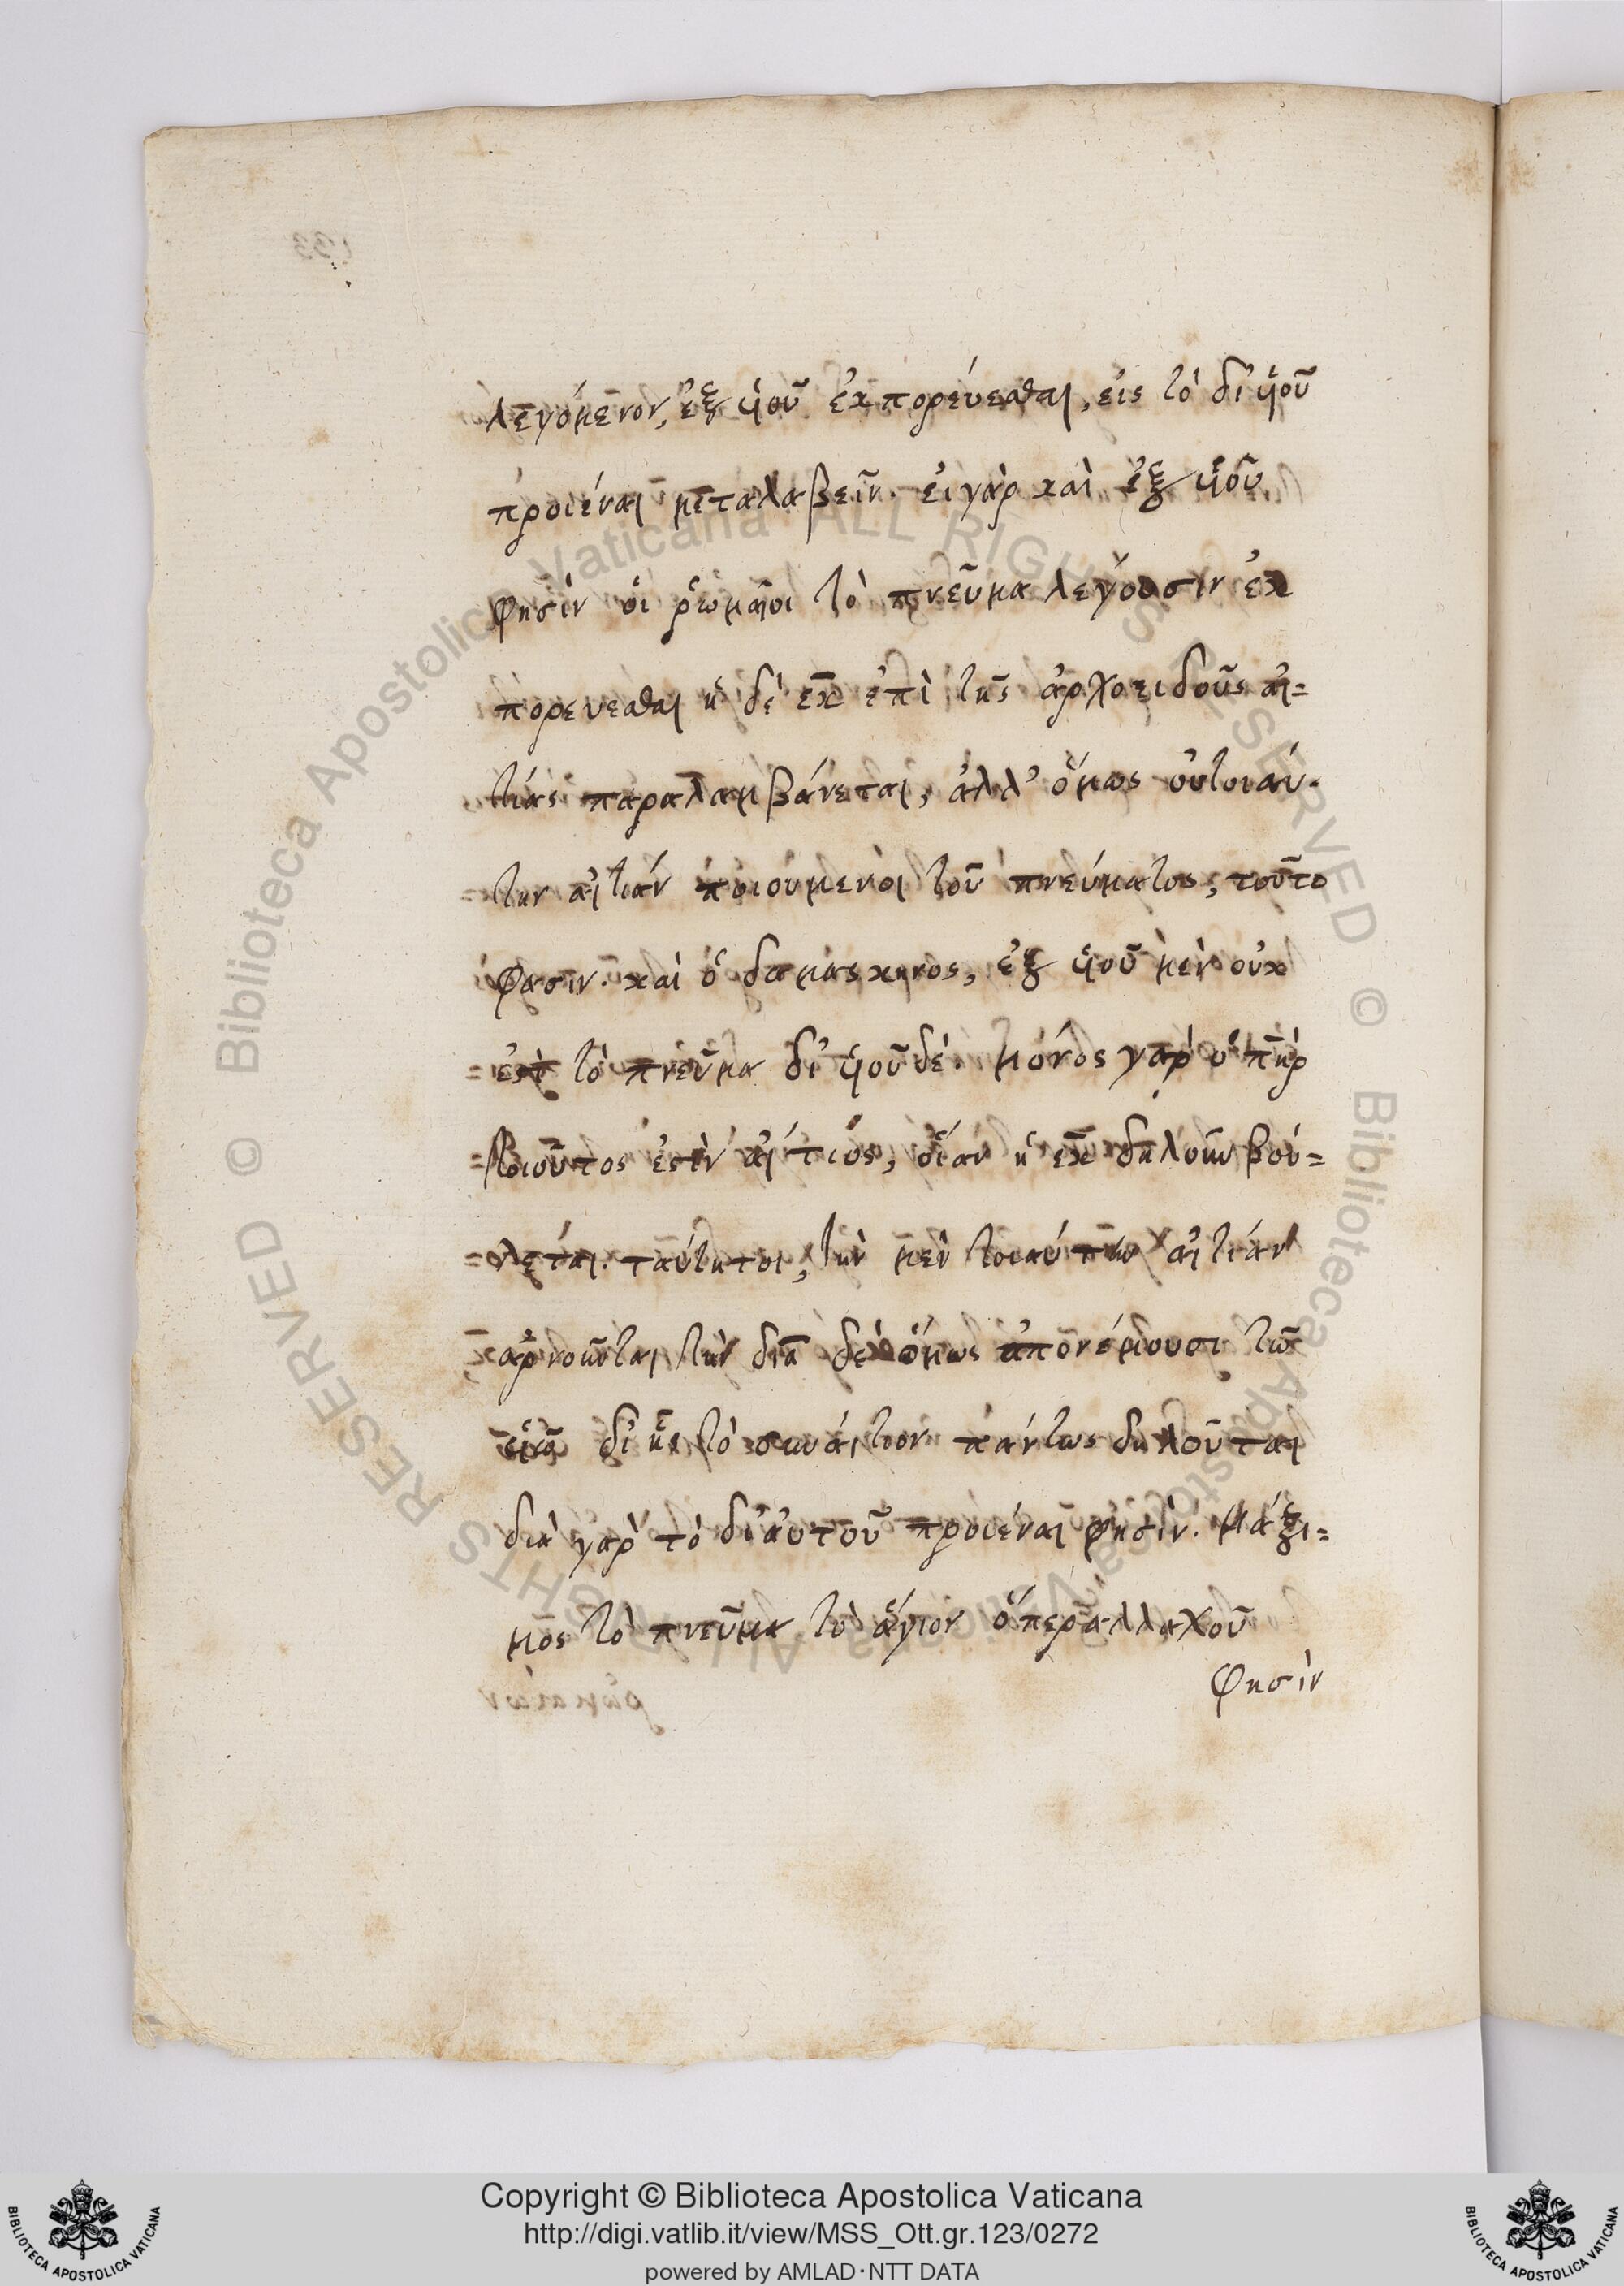 λεγόμενον, ἐξ ὑιοῦ ἐκπορεύεσθαι, εἰς τὸ δι ὑιοῦ
προιέναι μεταλαβεῖν. εἰ γὰρ καὶ ἐξ ὑιοῦ
φησὶν οἱ ῥωμαῖοι τὸ πνεῦμα λεγουσιν ἐκ
πορευεσθαι ἡ δὲ ἐκ ἐπὶ τῆς ἀρχοειδοῦς αἰ=
τίας παραλαμβάνεται, ἀλλ' ὅμως οὐ τοιαύ-
την αἰτιαν ποιούμενοι τοῦ πνεύματος, τοῦτο
φασιν. καὶ ὁ δαμασκηνος, ἐξ ὑιοῦ μὲν οὐκ
ἐστὶ τὸ πνεῦμα δι ὑιοῦ δέ. μόνος γὰρ ὁ πηρ
τοιοῦτος ἐστὶν αἴτιος, οἵαν ἡ ἐκ δηλοῦν βού=
λεται. ταύτητοι, τὴν μὲν τοιαύτην αἰτιάν
ἀρνοῦνται τὴν διὰ δὲ ὅμως ἀπονέμουσι τῶ
ὑιῶ δι ἧς τὸ συναίτιον πάντως δηλοῦται
διὰ γὰρ τὸ δι αὐτοῦ προιέναι φησὶν. Μάξι=
μος τὸ πνεῦμα τὸ ἅγιον ὅπερ ἀλλαχοῦ
φησὶν
Copyright © Biblioteca Apostolica Vaticana
http://digi.vatlib.it/view/MSS_Ott.gr.123/0272
powered by AMLAD·NTT DATA
BIBLIOTECA APOSTOLICA VATICANA
BIBLIOTECA APOSTOLICA VATICANA
© Biblioteca Apostolica Vaticana ALL RIGHTS RESERVED © Biblioteca Apostolica Vaticana ALL RIGHTS RESERVED